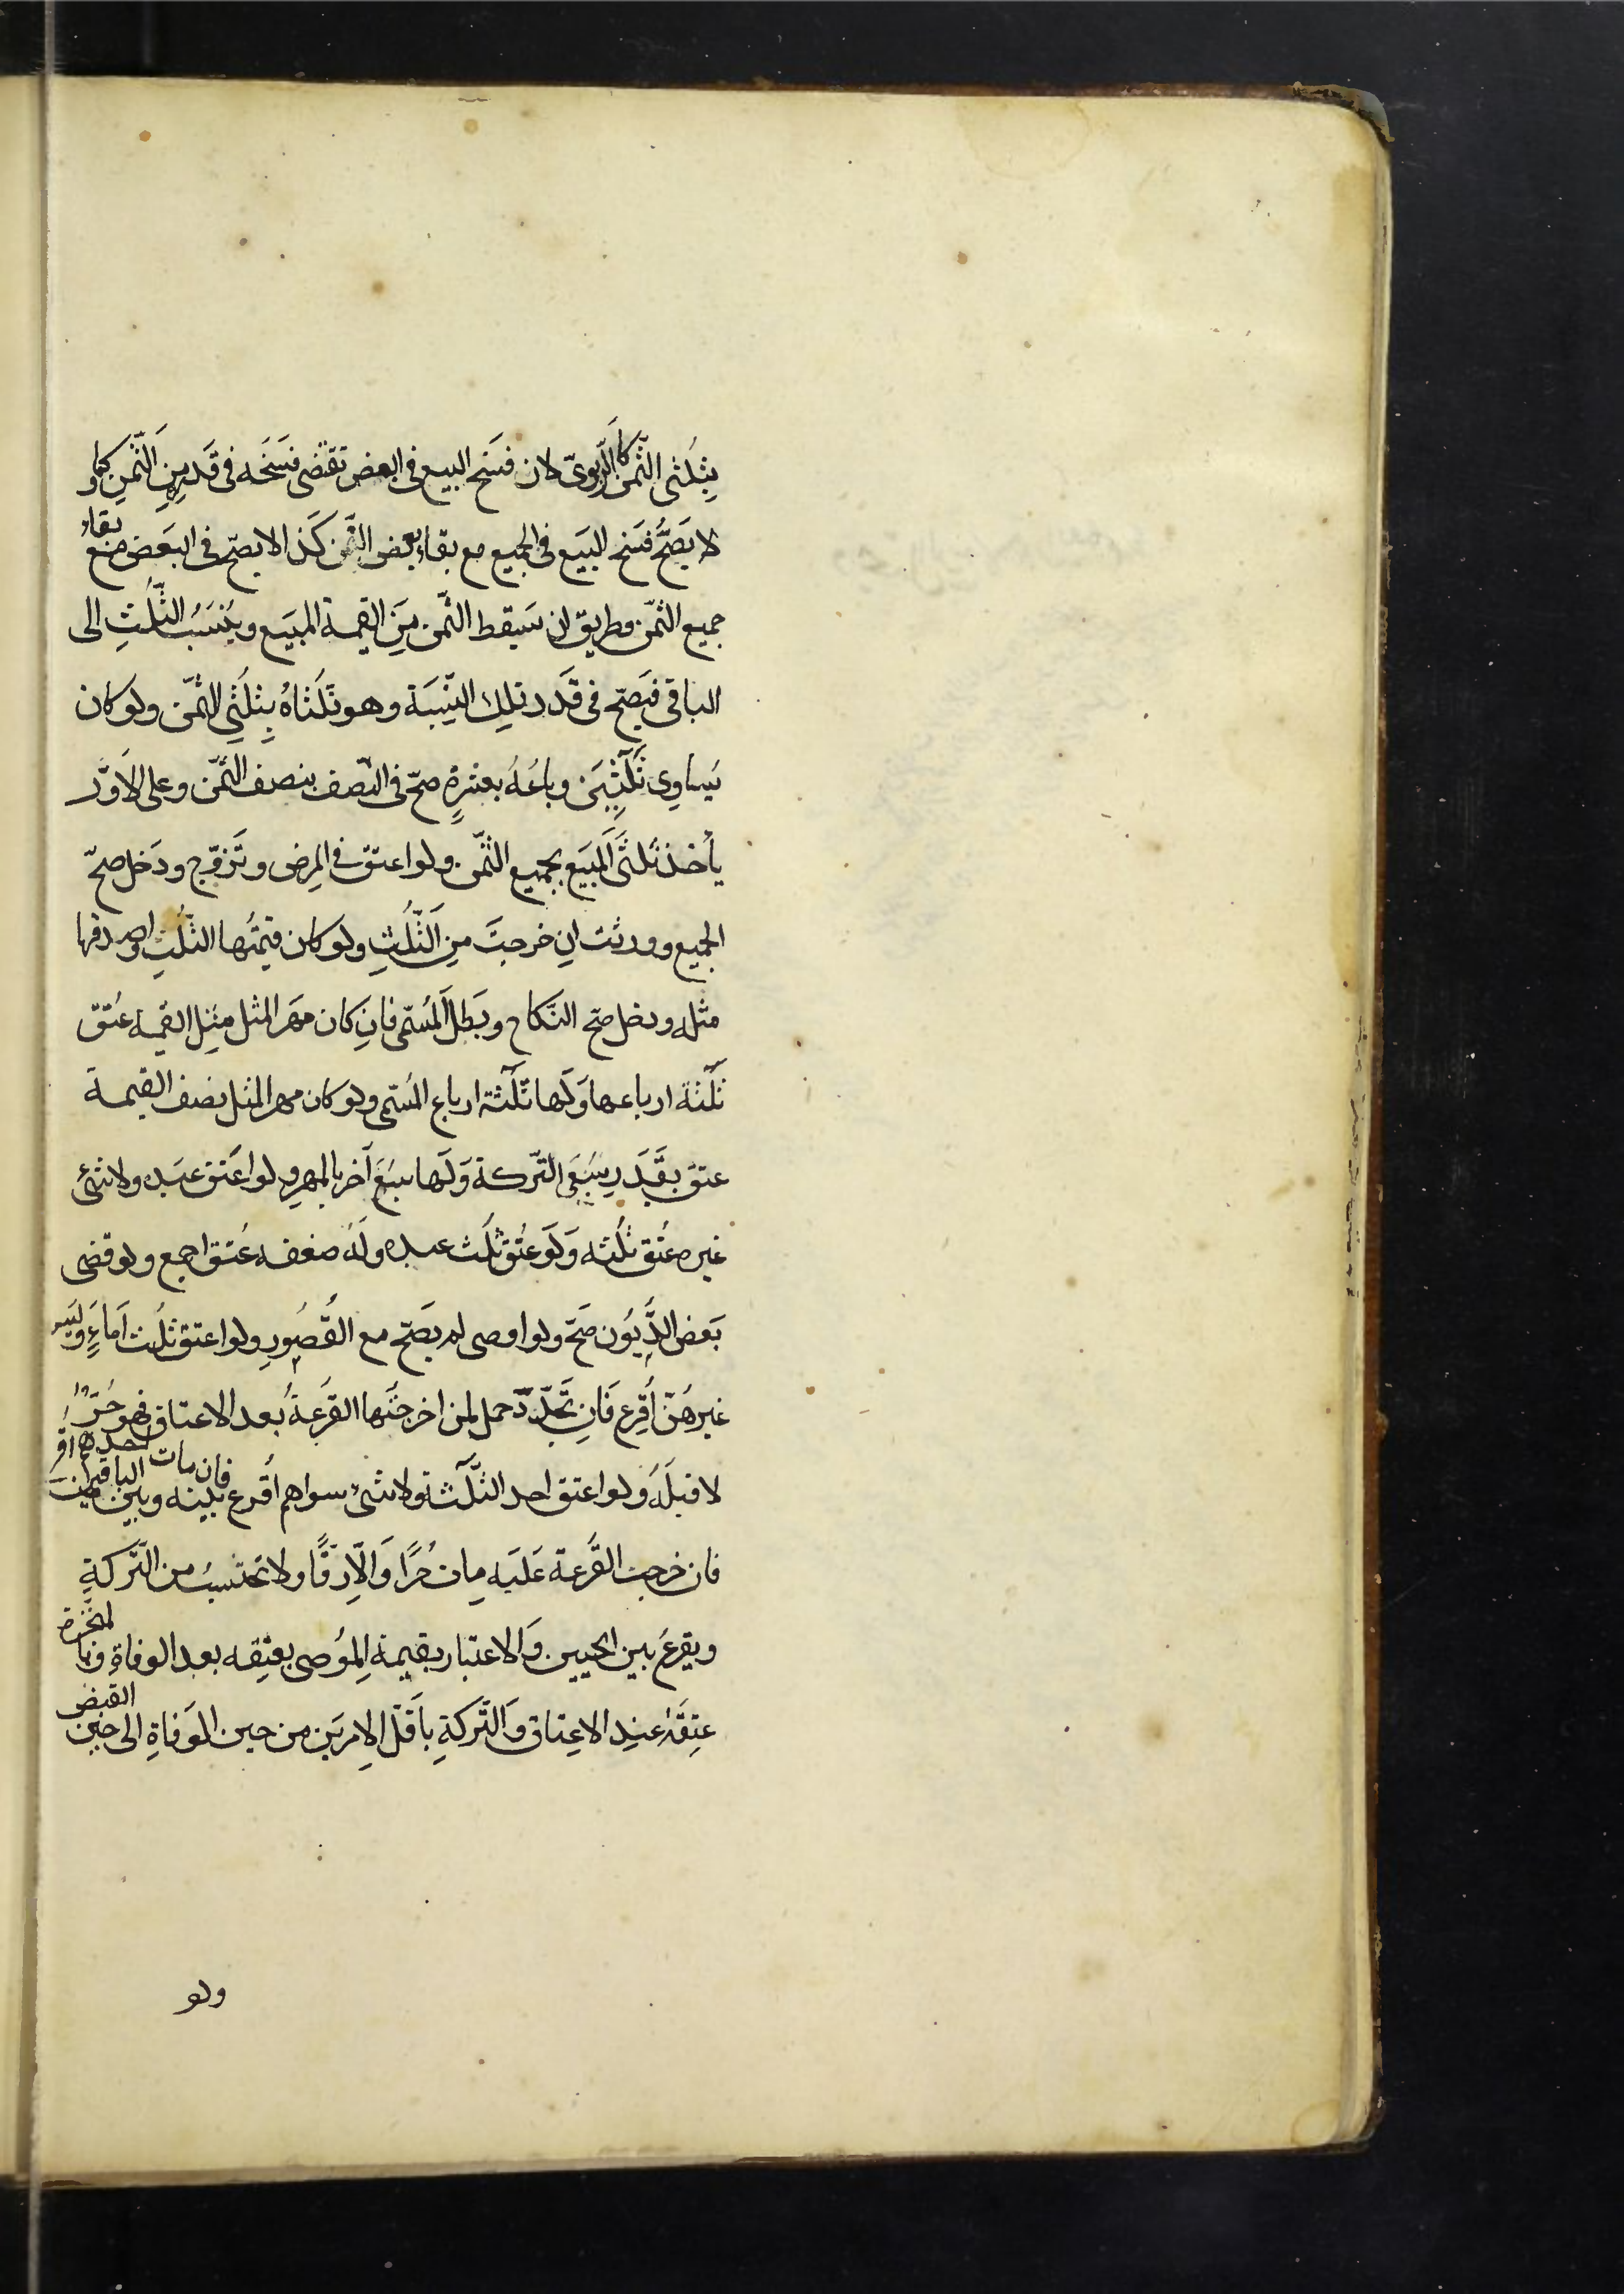 بِثُلثى الثّمن كالرّبوىّ لان فسَخ البيع فى البعض تقتضى فسَخَه فى قَدرِه مِنَ الثّمَنِ كما و
لا يَصَحُّ فسَخ البيَع فى الجميع مع بقاءِ بعض الثّمن كَذ الا يصحّ فى البَعض مَعَ بقاءِ
جميع الثّمَن وطريق ان سَيقط الثّمن مِنَ القيمة المبَيع ويُنسَبُ الثُّلُثِ الى
الباقى فيَصحّ فى قَدر تلِك النِّسِبَة وهو ثُلَثاهُ بِثلَثَىِ الثّمَن ولو كان
يَساوِى ثَلٰثِيَن وباعَهُ بعشرةٍ صحّ فى النّصف بنصف الثّمَّن وعلى الَاوّل
يأخذ ثُلثَى المبَيَع بجميع الثّمَن ولو اعتق فى المرِض وتَزوّج ودَخل صحّ
الجميع وورثت ان خرجتَ مِن الثّلُثِ ولو كان قيمتُها الثّلثِ واصدقها
مثله ودخل صح النّكاح وبَطل المُسَمّى فانِ كان مَهر المثل مثِل القيمة عُتق
ثلٰثة ارباعها وَلَها ثلٰثة ارباع المُسَمّى ولو كان مهر المثل نصف القيمة
عتقَ بقَدَرِ سبُعَى التّركة وَلَها سبُعَ آخر بالمهرِ ولو اعَتق عبَده ولا شئ
غيره عتُق ثلُثه وَلَو عتُق ثلُث عبده ولَهُ ضعفه عُتق اجمع ولو قضى
بَعض الدِّيُون صَحّ ولو اوصى لم يصَحّ مع القُصُورِ ولو اعتق ثلُث اَماءٍ وليَس
غيرهُنّ اُقِرع فَانِ تَجَدّد حمل لمن اخرجتَها القرُعَةُ بُعد الاعتاق فهو حُرّ
لا قبلَهُ ولو اعتق احد الثّلٰثة ولا شئ سواهم اُقرع فان مات احدهم اقر بَينه وبين الباقين
فان خرجت القُرعة عَليَه مات حُرًا وَالّا رِقًّا ولا تحتسبُ من التّركةِ
ويقرعَ بين الحيين وَالاعتبار بقيمة الِموُصى بعتِقه بعد الوفاةِ وبالمنجّزة
عِتِقَهُ عنِد الاعِتاق وَالتّركةِ باَقلّ الِامريَن من حين الوَفاةِ الى حيِن القبض
ولو